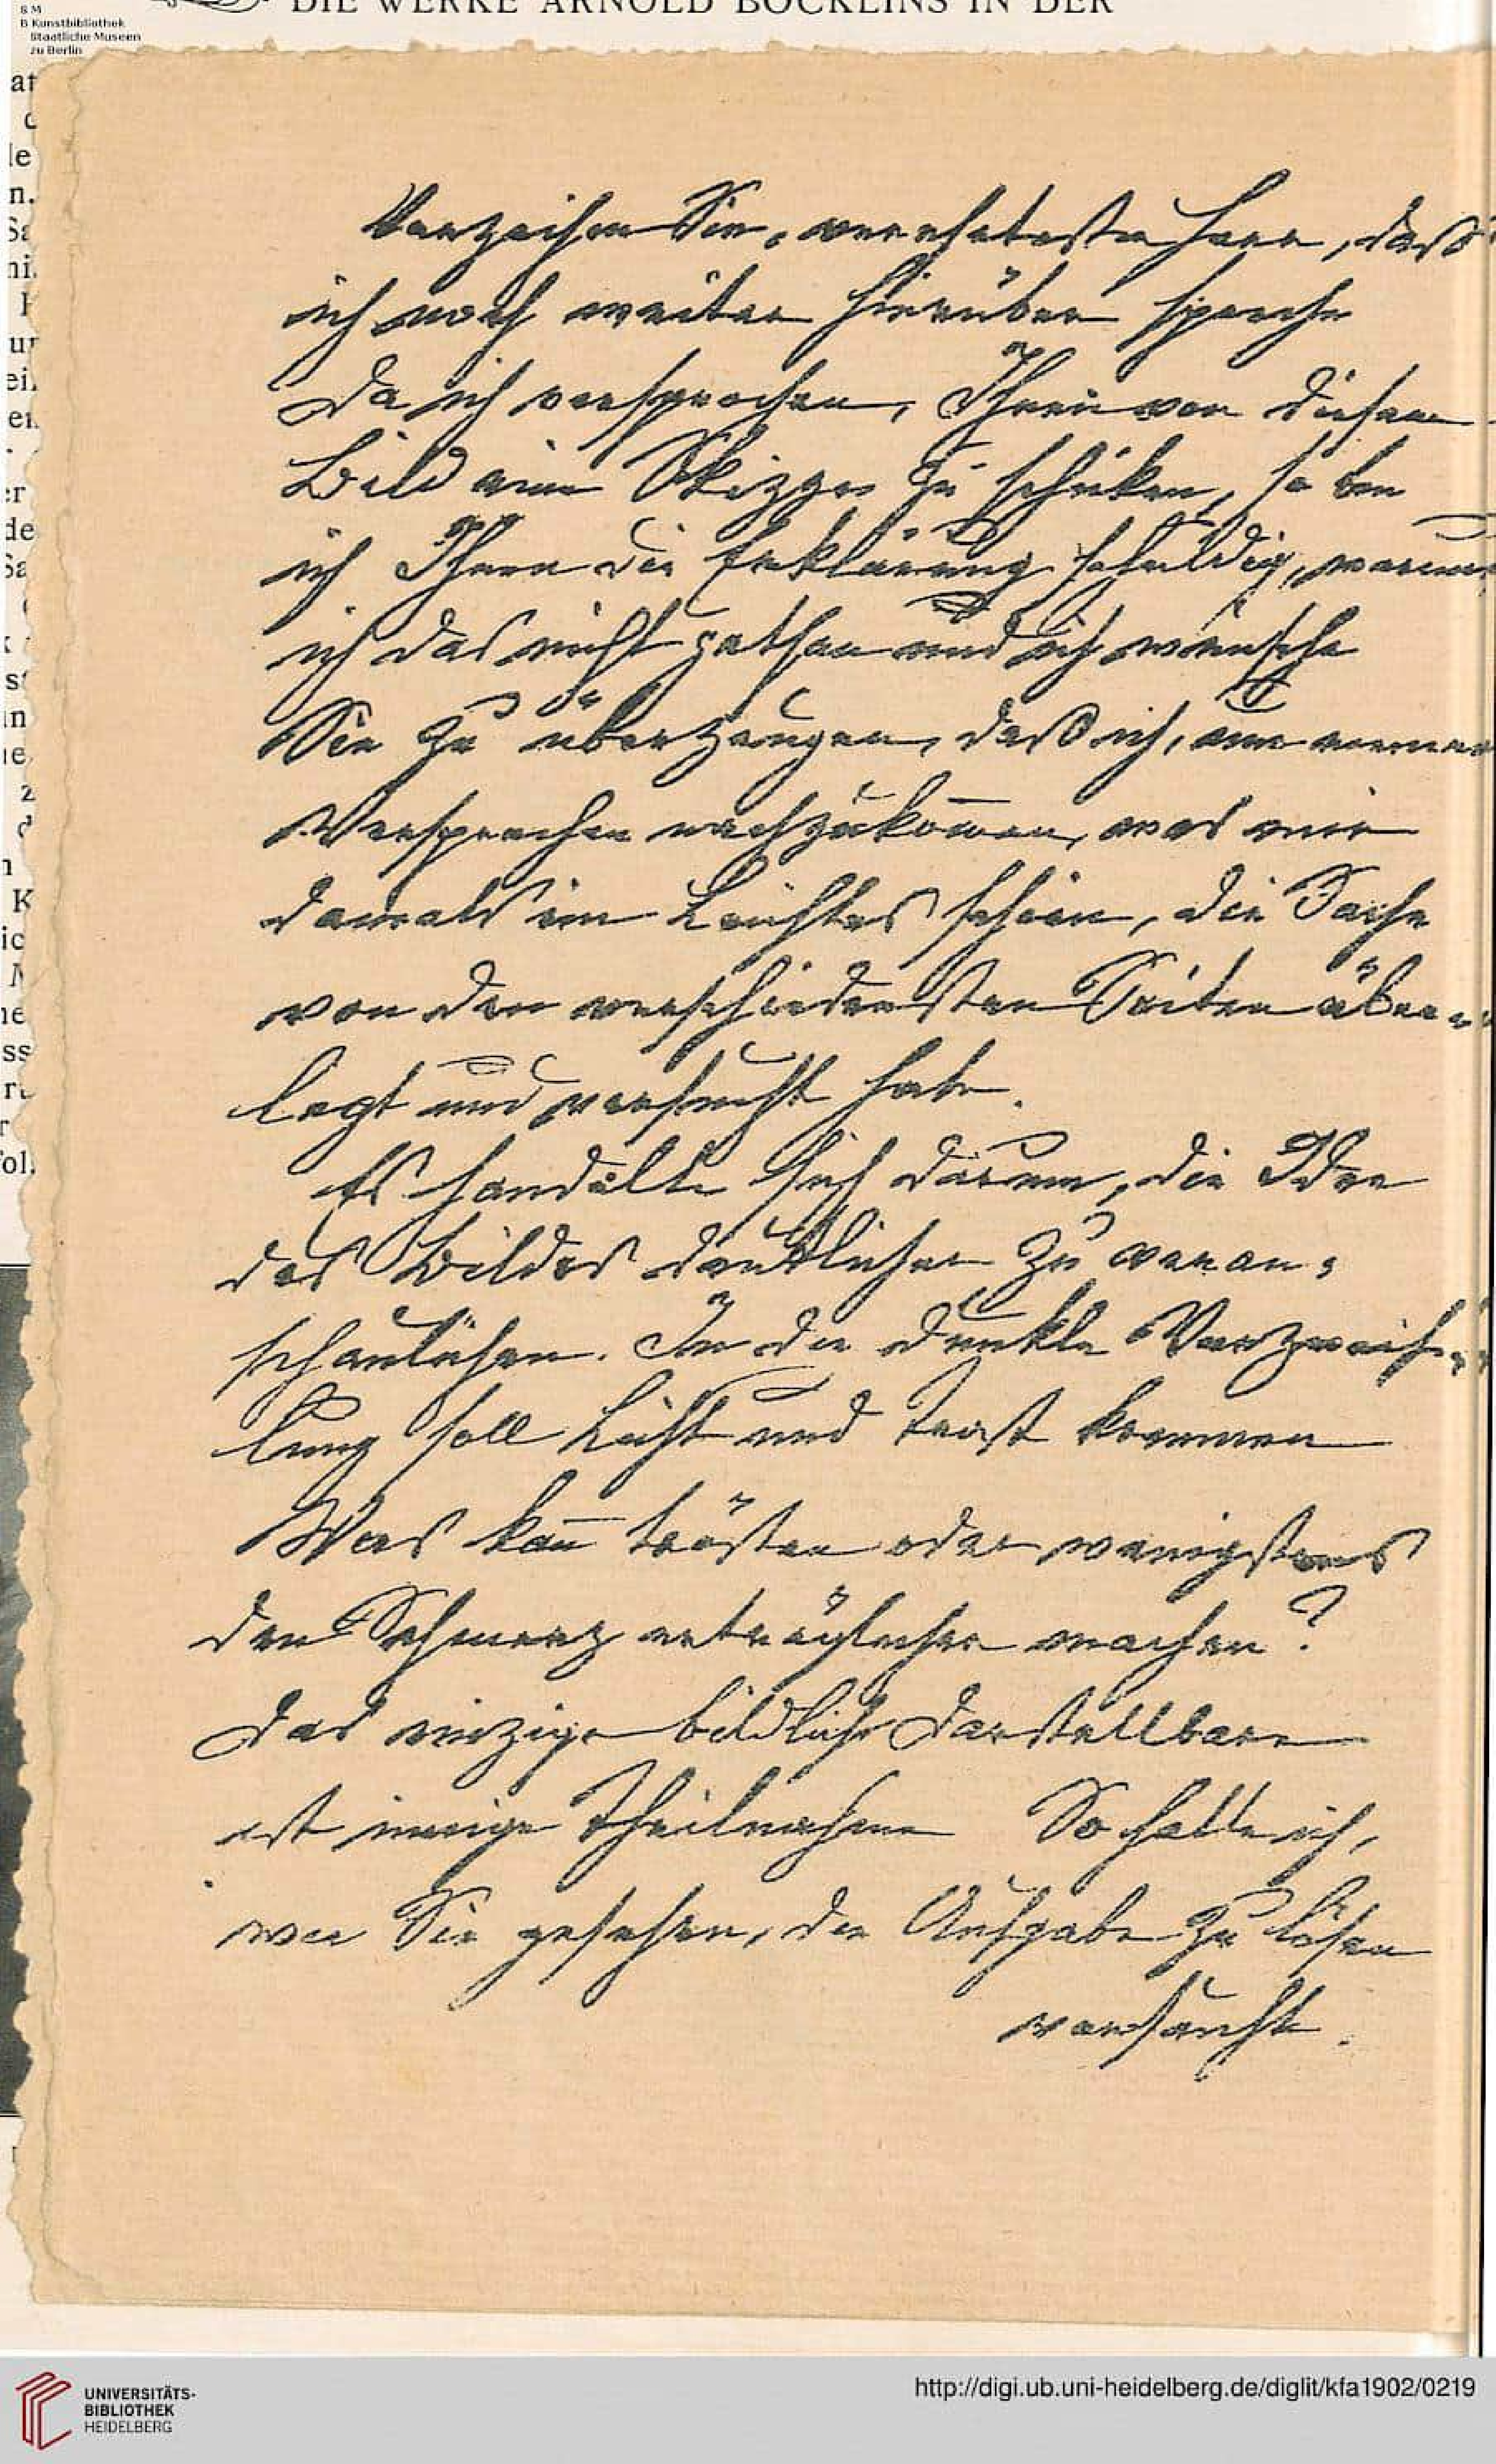 SM
B Kunstbibliothek
Staatliche Museen
zu Berlin
DIE WERKE ARNOLD BÖCKLINS IN DER
Verzeihen Sie, verehrtester Herr, daß
ich noch weiter hierüber spreche
Da ich versprochen, Ihnen von diesem
Bild eine Skizze zu schicken, so bin
ich Ihnen die Erklärung schuldig, warum
ich das nicht gethan und ich wünsche
Sie zu überzeugen, daß ich, um meinem
Versprechen nachzukom̅en, was mir
damals ein Leichtes schien, die Sache
von den verschiedensten Seiten über-
legt und versucht habe.
Es handelte sich darum, die Idee
des Bildes deutlicher zu veran-
schaulichen. In die dunkle Verzweif-
lung soll Licht und Trost kommen
Was kan̅ trösten oder wenigstens
den Schmerz erträglicher machen?
Das einzige bildlich Darstellbare
ist innige Theilnahme So hatte ich,
wie Sie gesehen, die Aufgabe zu lösen
versucht.
UNIVERSITÄTS-
BIBLIOTHEK
HEIDELBERG
http://digi.ub.uni-heidelberg.de/diglit/kfa1902/0219